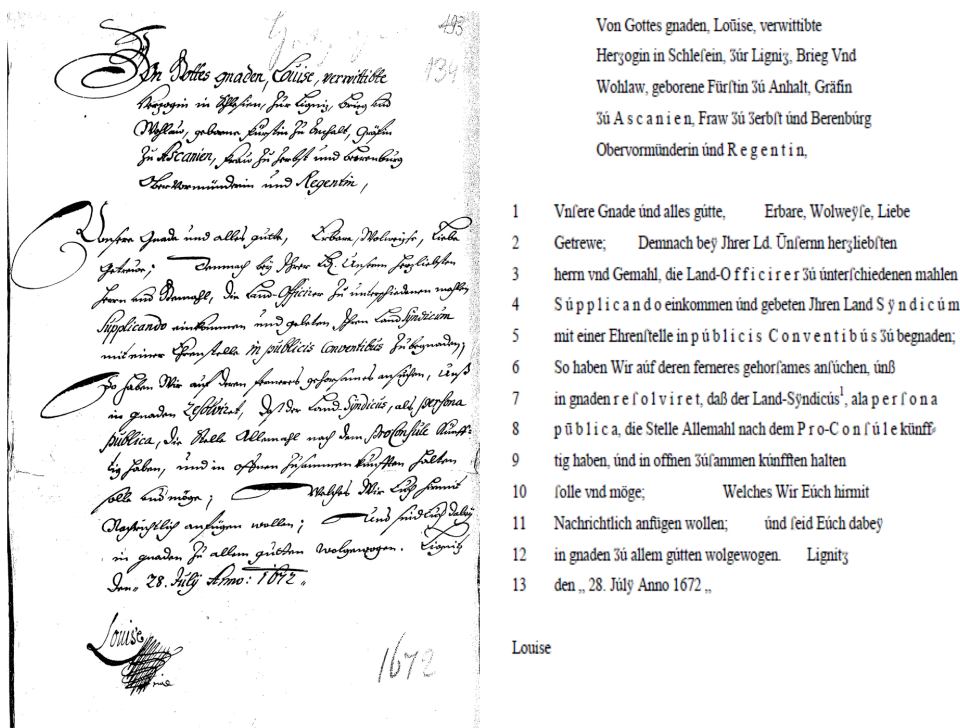 493
134
Von Gottes gnaden, Louise, verwittibte
Herzogin in Schlesien, Zur Ligniz, Brieg und
Wohlau, geborne Fürstin Zu Anhalt, Gräfin
Zu Ascanien, Frau Zu Zerbst und Berenburg
Ober Vormünderin und Regentin,
Unsere Gnade und alles gutte, Erbare, Wolweyse, Liebe
Getreue; Demnach bey Ihrer Ld. Unserm herzliebsten
herrn und Gemahl, die Land-Officirer Zu unterschiedenen mahlen
Supplicando einkommen und gebeten Ihren Land Syndicum
mit einer Ehrenstelle in publicis Conventibus Zu begnaden;
So haben Wir auf deren ferneres gehorsames ansuchen, Unß
in gnaden resolviret, daß der Land-Syndicus, als persona
publica, die Stelle Allemahl nach dem ProConsule künff-
tig haben, und in offnen Zusammen künfften halten
solle und möge; Welches Wir Euch hirmit
Nachrichtlich anfügen wollen; Und seid Euch dabey
in gnaden Zu allem gutten wolgewogen. Lignitz
den „ 28. July Anno: 1672 „
Louise
1672
Von Gottes gnaden, Loŭise, verwittibte
Herꝫogin in Schleſein, Ʒúr Ligniꝫ, Brieg Vnd
Wohlaw, geborene Fürſtin Ʒú Anhalt, Gräfin
Ʒú A s c a n i e n, Fraw Ʒú Ʒerbſt únd Berenbúrg
Obervormúnderin únd R e g e n t i n,
1 Vnſere Gnade únd alles gútte, Erbare, Wolweÿſe, Liebe
2 Getrewe; Demnach beÿ Jhrer Ld. Ūnſernn herꝫliebſten
3 herrn vnd Gemahl, die Land-O f f i c i r e r Ʒú únterſchiedenen mahlen
4 S ú p p l i c a n d o einkommen únd gebeten Jhren Land S ÿ n d i c ú m
5 mit einer Ehrenſtelle in p ú b l i c i s C o n v e n t i b ú s Ʒú begnaden;
6 So haben Wir aúf deren ferneres gehorſames anſúchen, únß
7 in gnaden r e ſ o l v i r e t, daß der Land-Sÿndicús¹, ala p e r ſ o n a
8 p ū b l i c a, die Stelle Allemahl nach dem P r o-C o n ſ ú l e künff⸗
9 tig haben, únd in offnen Ʒúſammen kúnfften halten
10 ſolle vnd möge; Welches Wir Eúch hirmit
11 Nachrichtlich anfügen wollen; únd ſeid Eúch dabeÿ
12 in gnaden Ʒú allem gútten wolgewogen. Lignitꝫ
13 den „ 28. Júlÿ Anno 1672 „
Louise